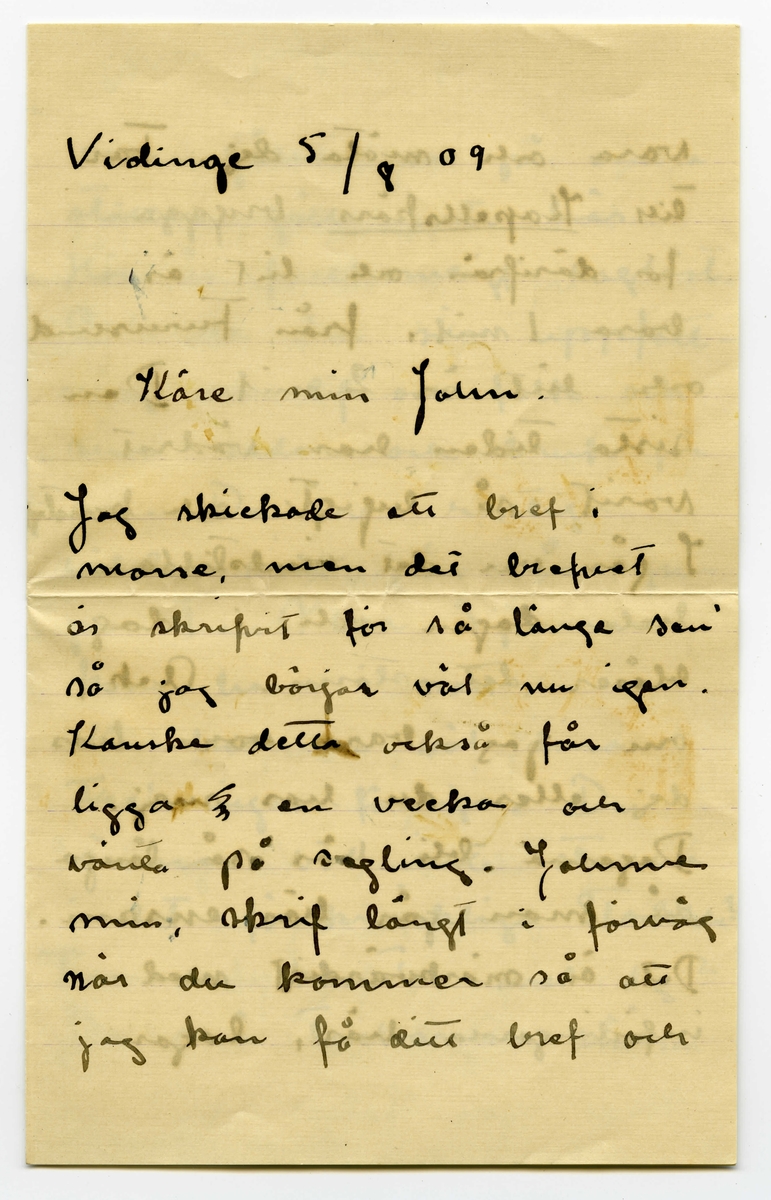 Vidinge 5/8 09
Käre min John.
Jag skickade ett bref i
morse, men det brefvet
är skrifvit för så länge sen
så jag börjar väl nu igen.
Kanske detta också får
ligga en vecka och
vänta på segling. Johnne
min, skrif långt i förväg
när du kommer så att
jag kan få ditt bref och